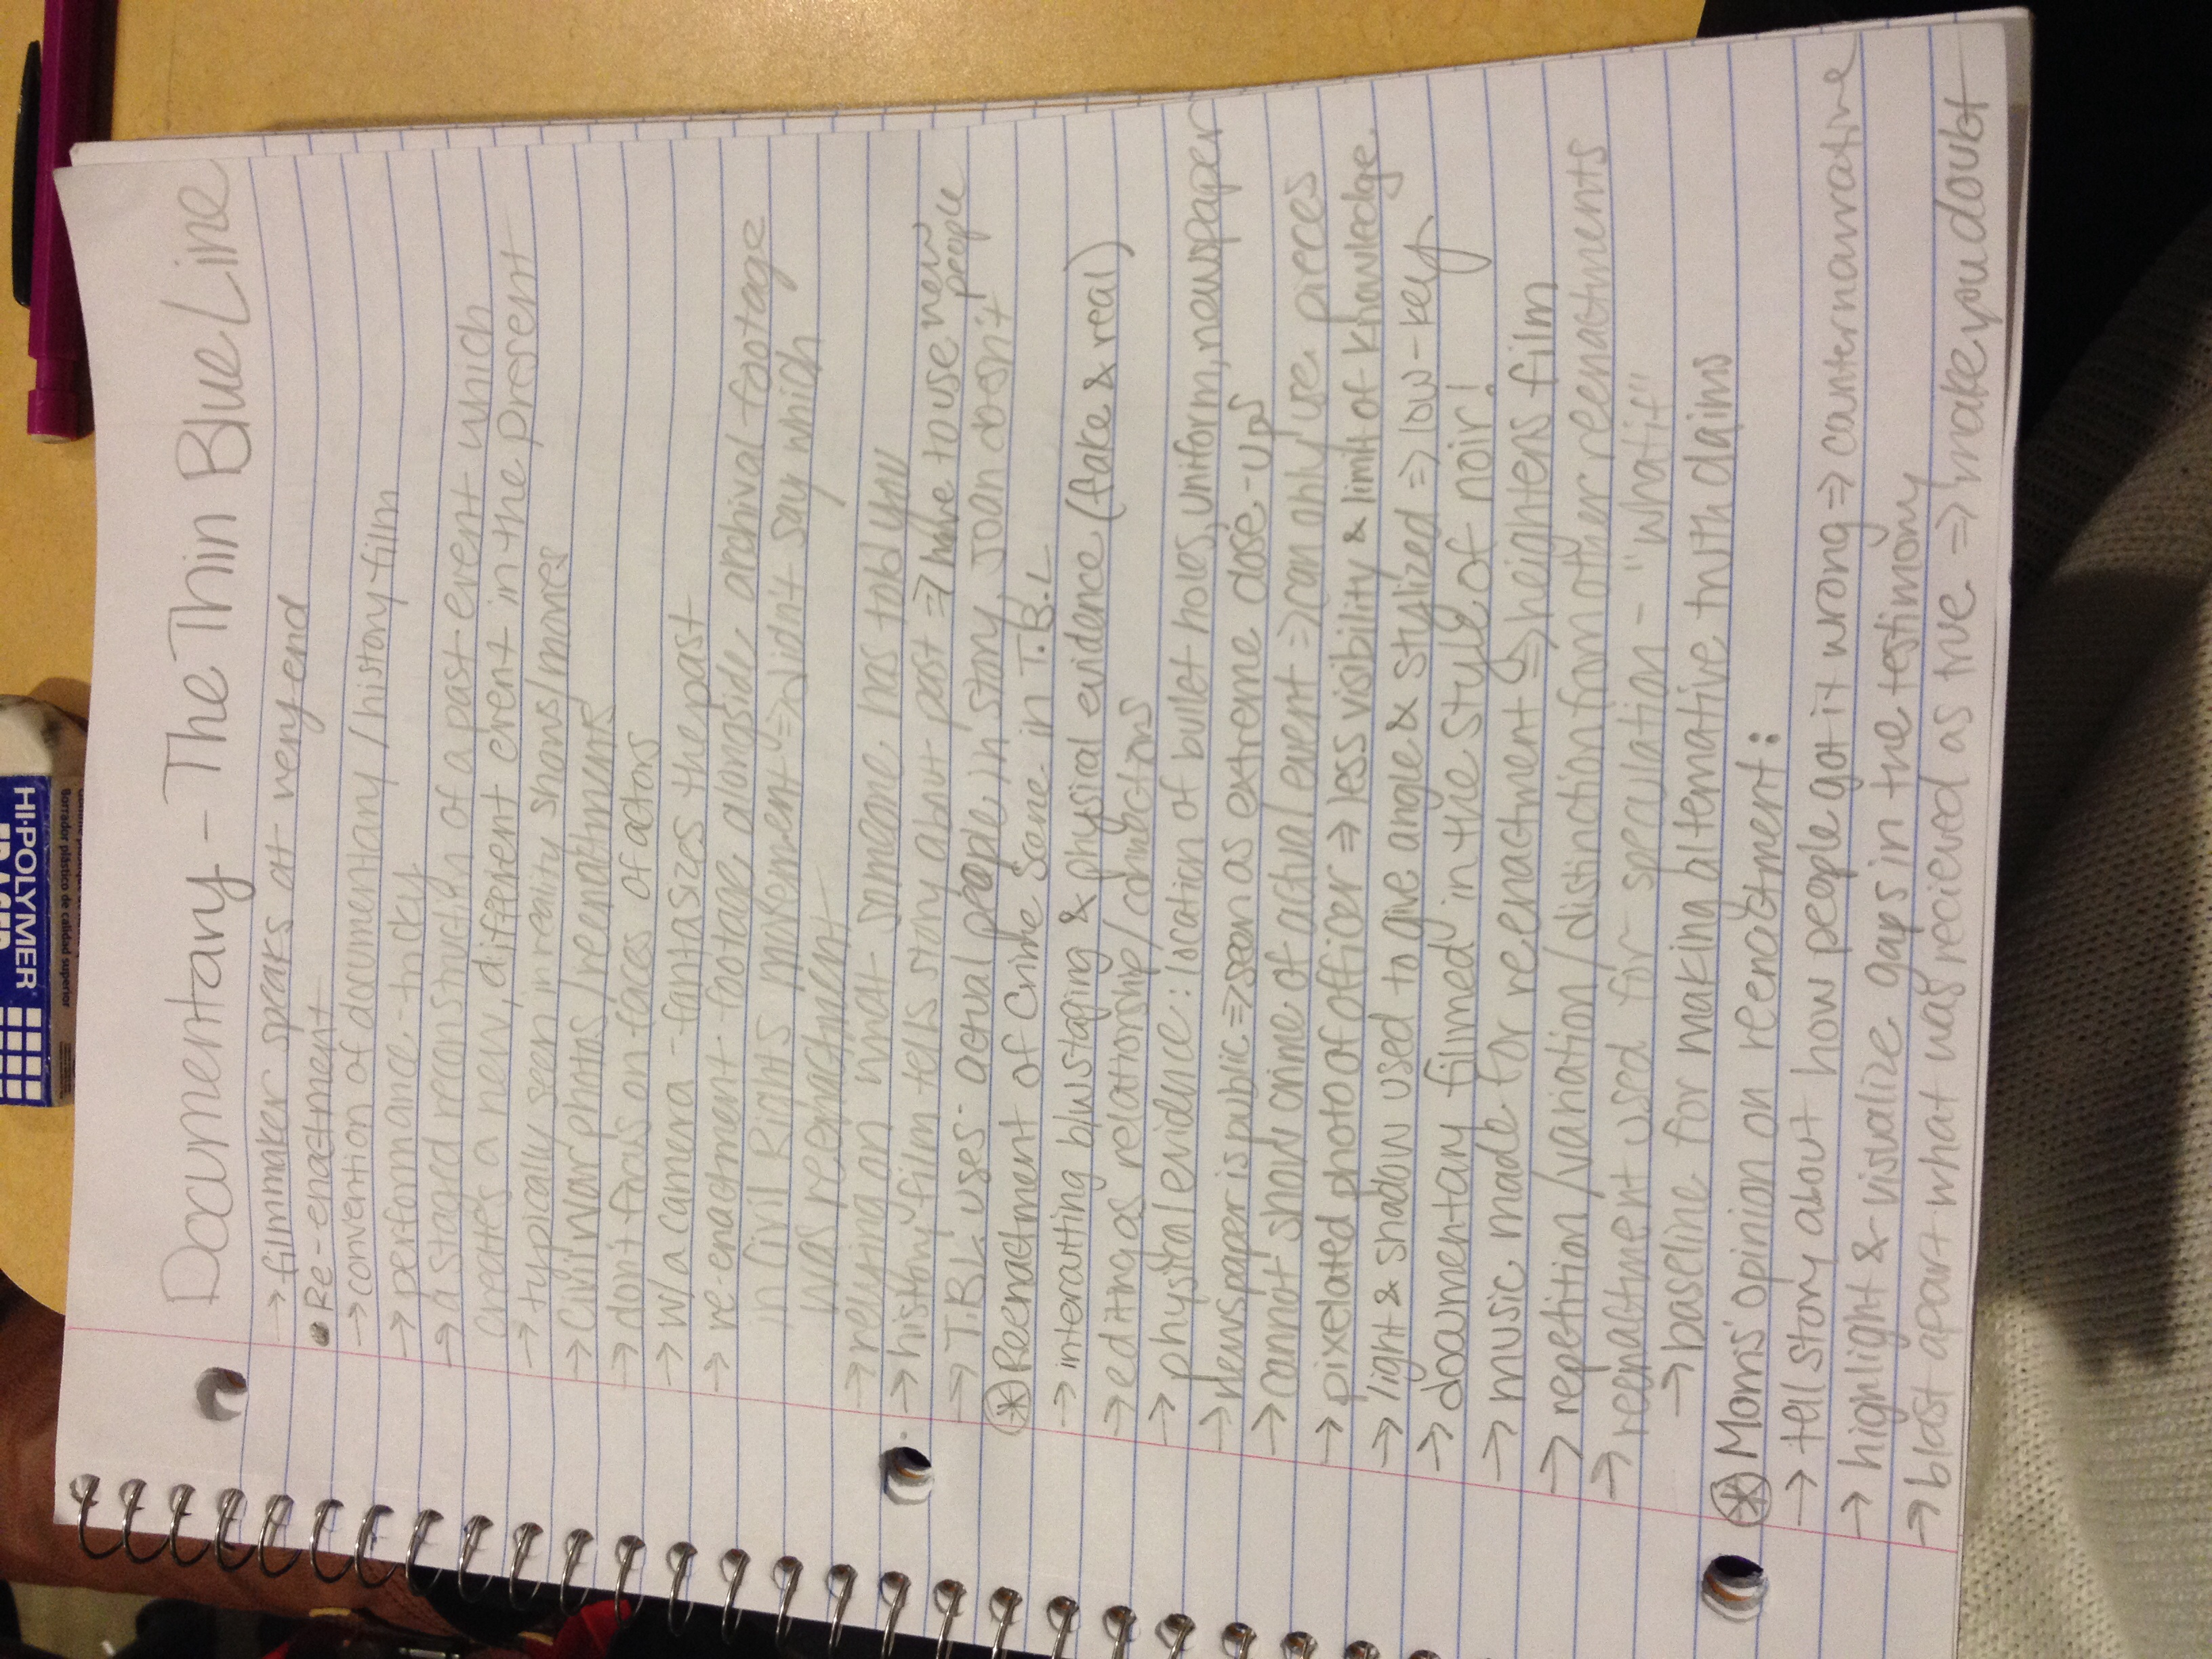 Documentary - The Thin Blue Line
→ filmmaker speaks at very end
• Re-enactment
→ convention of documentary / history film
→ performance - tricky
→ a staged reconstruction of a past event which
creates a new, different event in the present
→ typically seen in reality shows/movies
→ Civil War photos / reenactments
→ don't focus on faces of actors
→ w/ a camera - fantasizes the past
→ re-enactment footage alongside archival footage
in Civil Rights movement ⇒ didn't say which
was reenactment
→ relying on what someone has told you
→ history film tells story about past ⇒ have to use new people
→ T.B.L. uses actual people in story, Joan doesn't
* Reenactment of Crime Scene in T.B.L
→ intercutting b/w staging & physical evidence (fake & real)
→ editing as relationship/connections
→ physical evidence: location of bullet holes, uniform, newspaper
→ newspaper is public ⇒ seen as extreme close-ups
→ cannot show crime of actual event ⇒ can only use pieces
→ pixelated photo of officer ⇒ less visibility & limit of knowledge
→ light & shadow used to give angle & stylized ⇒ low-key
→ documentary filmed in the style of noir!
→ music made for reenactment ⇒ heightens film
→ repetition/variation/distinction from other reenactments
→ reenactment used for speculation - "what if"
→ baseline for making alternative truth claims
* Morris' opinion on reenactment:
→ tell story about how people got it wrong ⇒ counternarrative
→ highlight & visualize gaps in the testimony
→ blast apart what was recieved as true ⇒ make you doubt
HI-POLYMER
ERASER
Borrador plástico de calidad superior